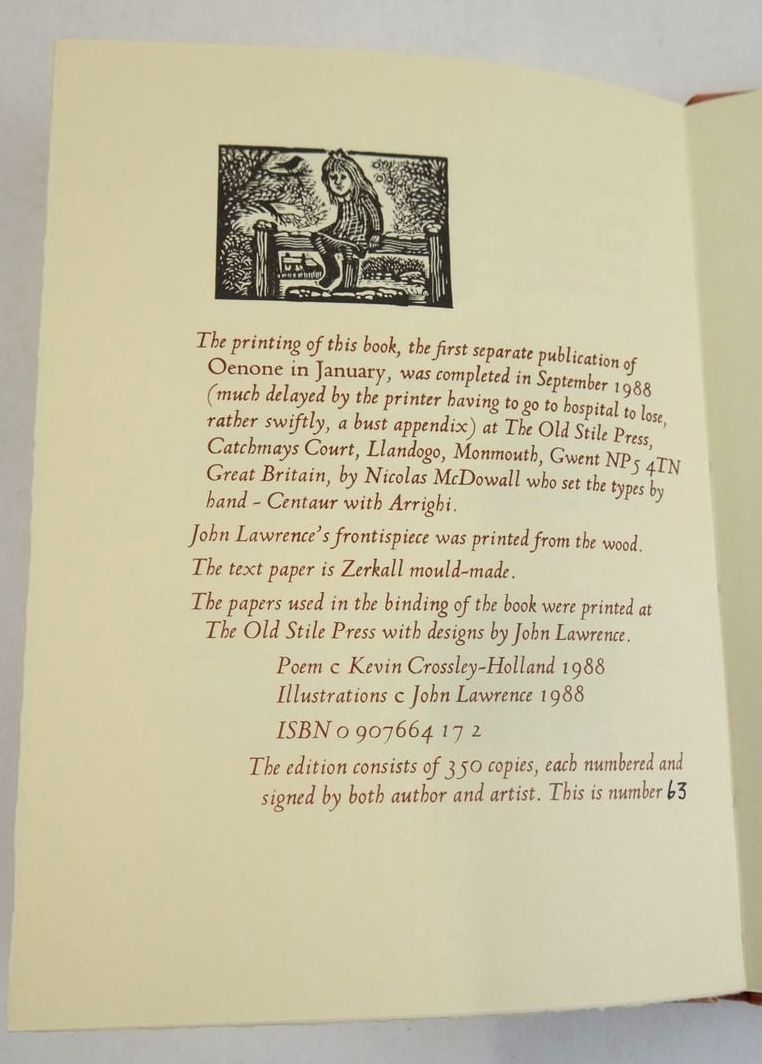 The printing of this book, the first separate publication of
Oenone in January, was completed in September 1988
(much delayed by the printer having to go to hospital to lose,
rather swiftly, a bust appendix) at The Old Stile Press,
Catchmays Court, Llandogo, Monmouth, Gwent NP5 4TN
Great Britain, by Nicolas McDowall who set the types by
hand - Centaur with Arrighi.
John Lawrence's frontispiece was printed from the wood.
The text paper is Zerkall mould-made.
The papers used in the binding of the book were printed at
The Old Stile Press with designs by John Lawrence.
Poem c Kevin Crossley-Holland 1988
Illustrations c John Lawrence 1988
ISBN 0 907664 17 2
The edition consists of 350 copies, each numbered and
signed by both author and artist. This is number 63